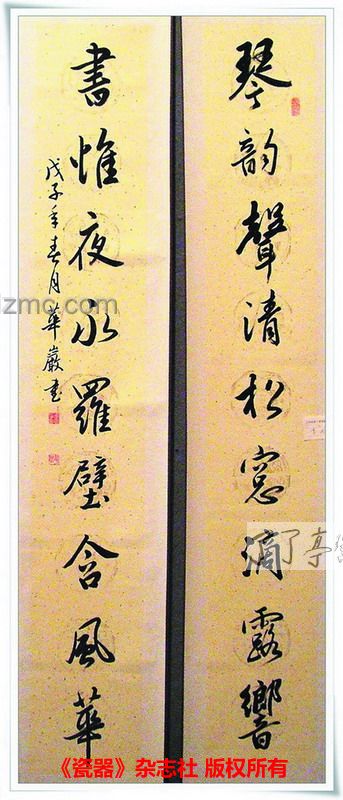 琴韵聲清松窓滴露響
書惟夜永羅壁含風華
戊子年春月華巖書
zmc.com
了亭
《瓷器》杂志社 版权所有